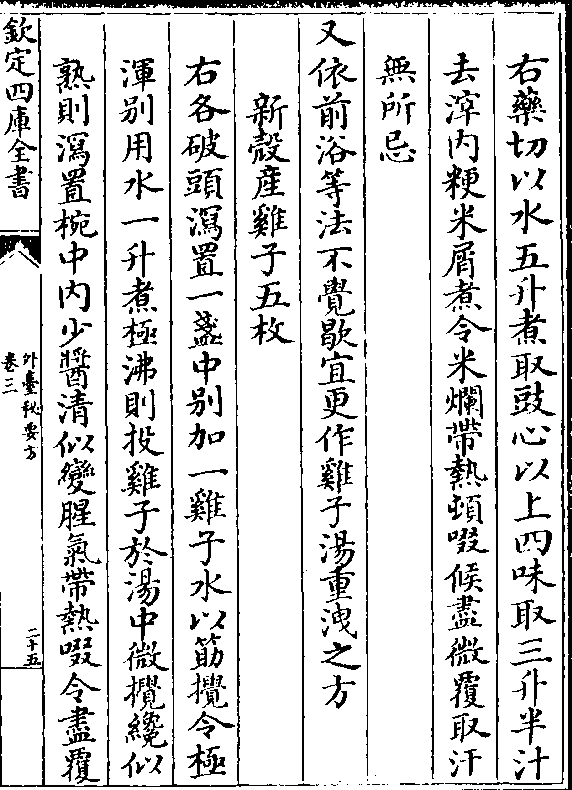 右藥切以水五升煮取豉心以上四味取三升半汁
去滓内粳米屑煮令米爛帶熱頓啜候盡微覆取汗
無所忌
又依前浴等法不覺歇宜更作雞子湯重洩之方
新殼産雞子五枚
右各破頭瀉置一盞中别加一雞子水以筯攪令極
渾别用水一升煮極沸則投雞子於湯中微攪纔似
熟則瀉置椀中内少醬清似變腥氣帶熱啜令盡覆
欽定四庫全書
外臺秘要方
卷三
二十五